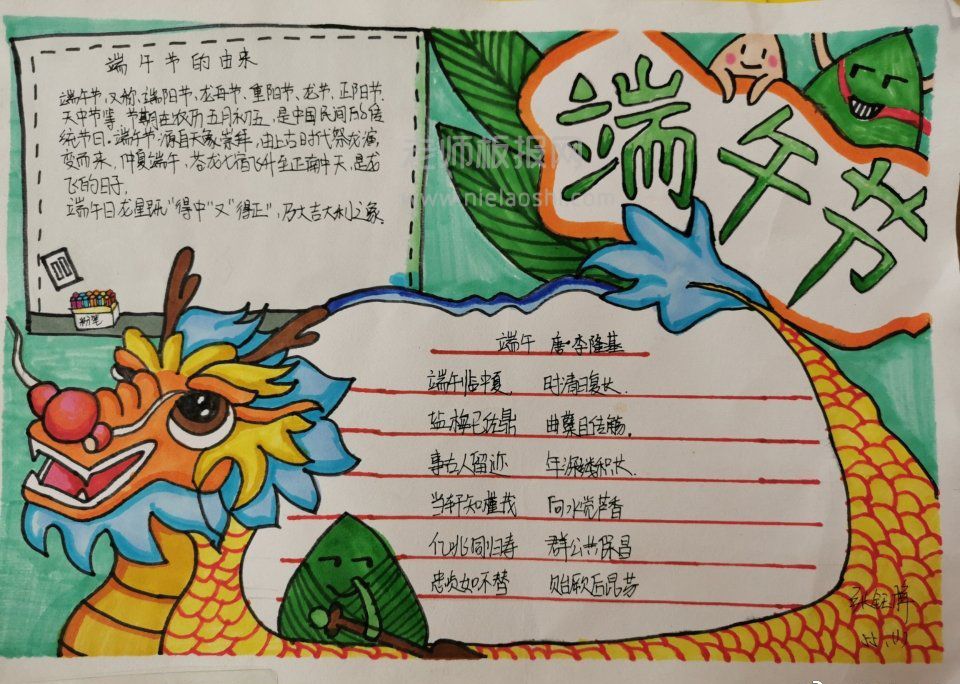 端午节的由来
端午节,又称端阳节、龙舟节、重阳节、龙节、正阳节、
天中节等,节期在农历五月初五,是中国民间的传
统节日。端午节源自天象崇拜,由上古时代祭龙演
变而来。仲夏端午,苍龙七宿飞升至正南中天,是龙
飞的日子,
端午日龙星既“得中”又“得正”,乃大吉大利之象。
粉笔
端午节
老师板报网
www.nielaoshi
端午 唐·李隆基
端午临中夏 时清日复长.
盐梅已佐鼎 曲蘖且传觞。
事古人留迹 年深缕积长.
当轩知槿茂 向水觉芦香
亿兆同归寿 群公共保昌
忠贞如不替 贻厥后昆芳